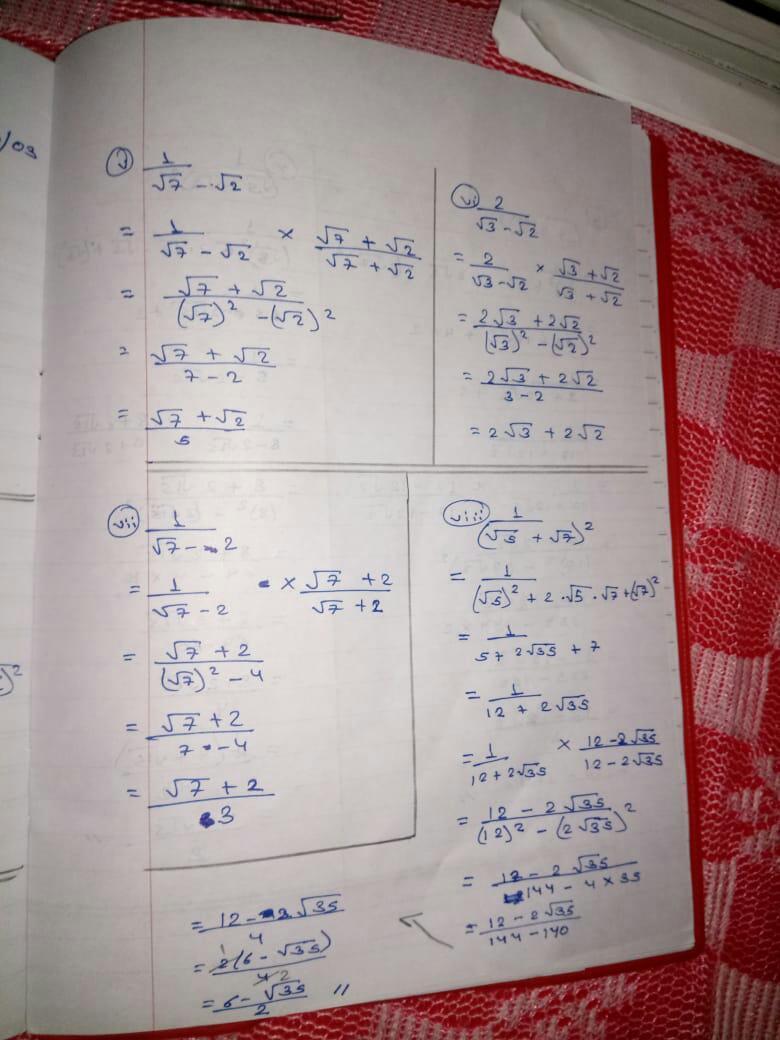 /03
v) 1/(√7 - √2)
= 1/(√7 - √2) × (√7 + √2)/(√7 + √2)
= (√7 + √2)/((√7)² - (√2)²)
= (√7 + √2)/(7 - 2)
= (√7 + √2)/5
vi) 2/(√3 - √2)
= 2/(√3 - √2) × (√3 + √2)/(√3 + √2)
= (2√3 + 2√2)/((√3)² - (√2)²)
= (2√3 + 2√2)/(3 - 2)
= 2√3 + 2√2
vii) 1/(√7 - 2)
= 1/(√7 - 2) × (√7 + 2)/(√7 + 2)
= (√7 + 2)/((√7)² - 4)
= (√7 + 2)/(7 - 4)
= (√7 + 2)/3
viii) 1/(√5 + √7)²
= 1/((√5)² + 2·√5·√7 + (√7)²)
= 1/(5 + 2√35 + 7)
= 1/(12 + 2√35)
= 1/(12 + 2√35) × (12 - 2√35)/(12 - 2√35)
= (12 - 2√35)/((12)² - (2√35)²)
= (12 - 2√35)/(144 - 4×35)
= (12 - 2√35)/(144 - 140)
= (12 - 2√35)/4
= 2(6 - √35)/4 2
= (6 - √35)/2 //
)²